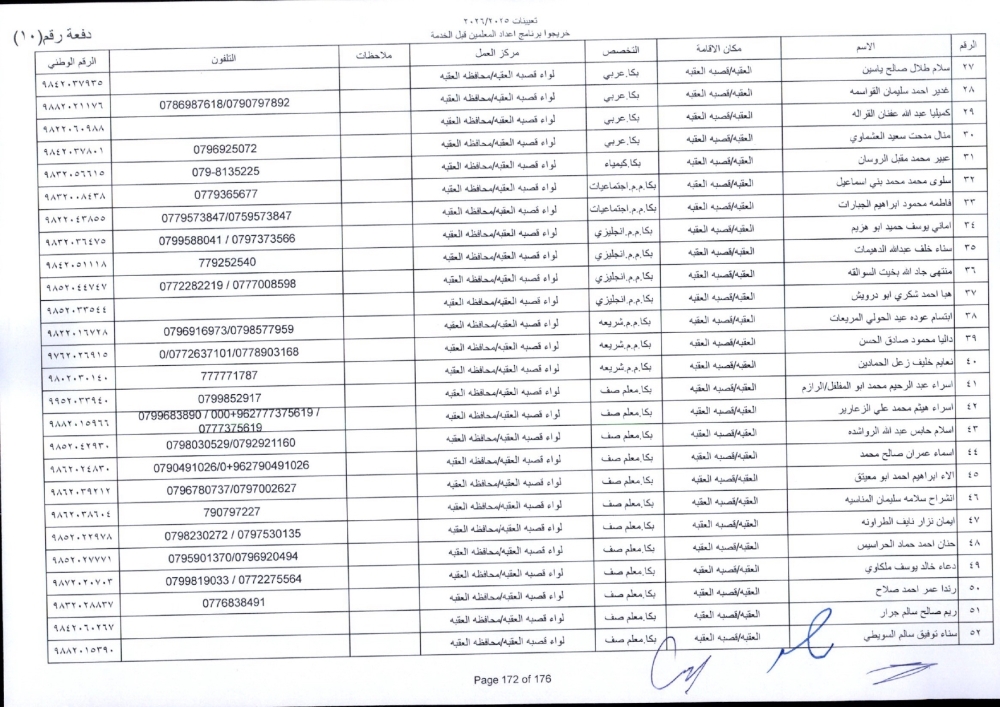 تعيينات ٢٠٢٦/٢٠٢٥
خريجوا برنامج اعداد المعلمين قبل الخدمة
دفعة رقم(١٠)
الرقم الاسم مكان الاقامة التخصص مركز العمل ملاحظات التلفون الرقم الوطني
٢٧ سلام طلال صالح ياسين العقبه/قصبه العقبه بكا.عربي لواء قصبه العقبه/محافظه العقبه ٩٨٤٢٠٣٧٩٣٥
٢٨ غدير احمد سليمان القواسمه العقبه/قصبه العقبه بكا.عربي لواء قصبه العقبه/محافظه العقبه 0786987618/0790797892 ٩٨٨٢٠٢١١٧٦
٢٩ كميليا عبد الله عفنان القراله العقبه/قصبه العقبه بكا.عربي لواء قصبه العقبه/محافظه العقبه ٩٨٢٢٠٦٠٩٨٨
٣٠ منال مدحت سعيد العشماوي العقبه/قصبه العقبه بكا.عربي لواء قصبه العقبه/محافظه العقبه 0796925072 ٩٨٤٢٠٣٧٨٠١
٣١ عبير محمد مقبل الروسان العقبه/قصبه العقبه بكا.كيمياء لواء قصبه العقبه/محافظه العقبه 079-8135225 ٩٨٣٢٠٥٦٦١٥
٣٢ سلوى محمد محمد بني اسماعيل العقبه/قصبه العقبه بكا.م.م.اجتماعيات لواء قصبه العقبه/محافظه العقبه 0779365677 ٩٨٣٢٠٠٨٤٣٨
٣٣ فاطمه محمود ابراهيم الجبارات العقبه/قصبه العقبه بكا.م.م.اجتماعيات لواء قصبه العقبه/محافظه العقبه 0779573847/0759573847 ٩٨٢٢٠٤٣٨٥٥
٣٤ اماني يوسف حميد ابو هزيم العقبه/قصبه العقبه بكا.م.م.انجليزي لواء قصبه العقبه/محافظه العقبه 0799588041 / 0797373566 ٩٨٣٢٠٣٦٤٧٥
٣٥ سناء خلف عبدالله الدهيمات العقبه/قصبه العقبه بكا.م.م.انجليزي لواء قصبه العقبه/محافظه العقبه 779252540 ٩٨٤٢٠٥١١١٨
٣٦ منتهى جاد الله بخيت السوالقه العقبه/قصبه العقبه بكا.م.م.انجليزي لواء قصبه العقبه/محافظه العقبه 0772282219 / 0777008598 ٩٨٥٢٠٤٤٧٤٧
٣٧ هبا احمد شكري ابو درويش العقبه/قصبه العقبه بكا.م.م.انجليزي لواء قصبه العقبه/محافظه العقبه ٩٨٥٢٠٣٣٥٤٤
٣٨ ابتسام عوده عبد الحولي المريعات العقبه/قصبه العقبه بكا.م.م.شريعه لواء قصبه العقبه/محافظه العقبه 0796916973/0798577959 ٩٨٢٢٠١٦٧٢٨
٣٩ داليا محمود صادق الحسن العقبه/قصبه العقبه بكا.م.م.شريعه لواء قصبه العقبه/محافظه العقبه 0/0772637101/0778903168 ٩٧٦٢٠٢٦٩١٥
٤٠ نعايم خليف زعل الحمادين العقبه/قصبه العقبه بكا.م.م.شريعه لواء قصبه العقبه/محافظه العقبه 777771787 ٩٨٠٢٠٣٠١٤٠
٤١ اسراء عبد الرحيم محمد ابو المفلفل/الرازم العقبه/قصبه العقبه بكا.معلم صف لواء قصبه العقبه/محافظه العقبه 0799852917 ٩٩٥٢٠٣٣٩٤٠
٤٢ اسراء هيثم محمد علي الزعارير العقبه/قصبه العقبه بكا.معلم صف لواء قصبه العقبه/محافظه العقبه 0799683890 / 000+962777375619 / 0777375619 ٩٨٨٢٠١٥٩٦٦
٤٣ اسلام حابس عبد الله الرواشده العقبه/قصبه العقبه بكا.معلم صف لواء قصبه العقبه/محافظه العقبه 0798030529/0792921160 ٩٨٥٢٠٤٢٩٣٠
٤٤ اسماء عمران صالح محمد العقبه/قصبه العقبه بكا.معلم صف لواء قصبه العقبه/محافظه العقبه 0790491026/0+962790491026 ٩٨٦٢٠٢٤٨٣٠
٤٥ الاء ابراهيم احمد ابو معيتق العقبه/قصبه العقبه بكا.معلم صف لواء قصبه العقبه/محافظه العقبه 0796780737/0797002627 ٩٨٦٢٠٣٩٢١٢
٤٦ انشراح سلامه سليمان المناسيه العقبه/قصبه العقبه بكا.معلم صف لواء قصبه العقبه/محافظه العقبه 790797227 ٩٨٦٢٠٣٨٦٠٤
٤٧ ايمان نزار نايف الطراونه العقبه/قصبه العقبه بكا.معلم صف لواء قصبه العقبه/محافظه العقبه 0798230272 / 0797530135 ٩٨٥٢٠٢٢٩٧٨
٤٨ حنان احمد حماد الحراسيس العقبه/قصبه العقبه بكا.معلم صف لواء قصبه العقبه/محافظه العقبه 0795901370/0796920494 ٩٨٥٢٠٢٧٧٧١
٤٩ دعاء خالد يوسف ملكاوي العقبه/قصبه العقبه بكا.معلم صف لواء قصبه العقبه/محافظه العقبه 0799819033 / 0772275564 ٩٨٧٢٠٢٠٧٠٣
٥٠ رندا عمر احمد صلاح العقبه/قصبه العقبه بكا.معلم صف لواء قصبه العقبه/محافظه العقبه 0776838491 ٩٨٣٢٠٢٨٨٣٧
٥١ ريم صالح سالم جرار العقبه/قصبه العقبه بكا.معلم صف لواء قصبه العقبه/محافظه العقبه ٩٨٤٢٠٦٠٢٦٧
٥٢ سناء توفيق سالم السويطي العقبه/قصبه العقبه بكا.معلم صف لواء قصبه العقبه/محافظه العقبه ٩٨٨٢٠١٥٣٩٠
Page 172 of 176